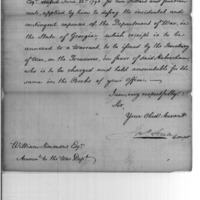 Esqr. dated June 22d 1798 for two dollars and
cents, applied by him to defray the incidental and
contingent expenses of the Department of War, in
the State of Georgia, which receipt is to be
annexed to a Warrant, to be issued by the Secretary
of War, on the Treasurer, in favor of said
who is to be charged and held accountable for the
same in the Books of your office.
I am very respectfully
Sir,
Your Obed. Servant
William Simmons Esqr.
Accot. to the War Dept.